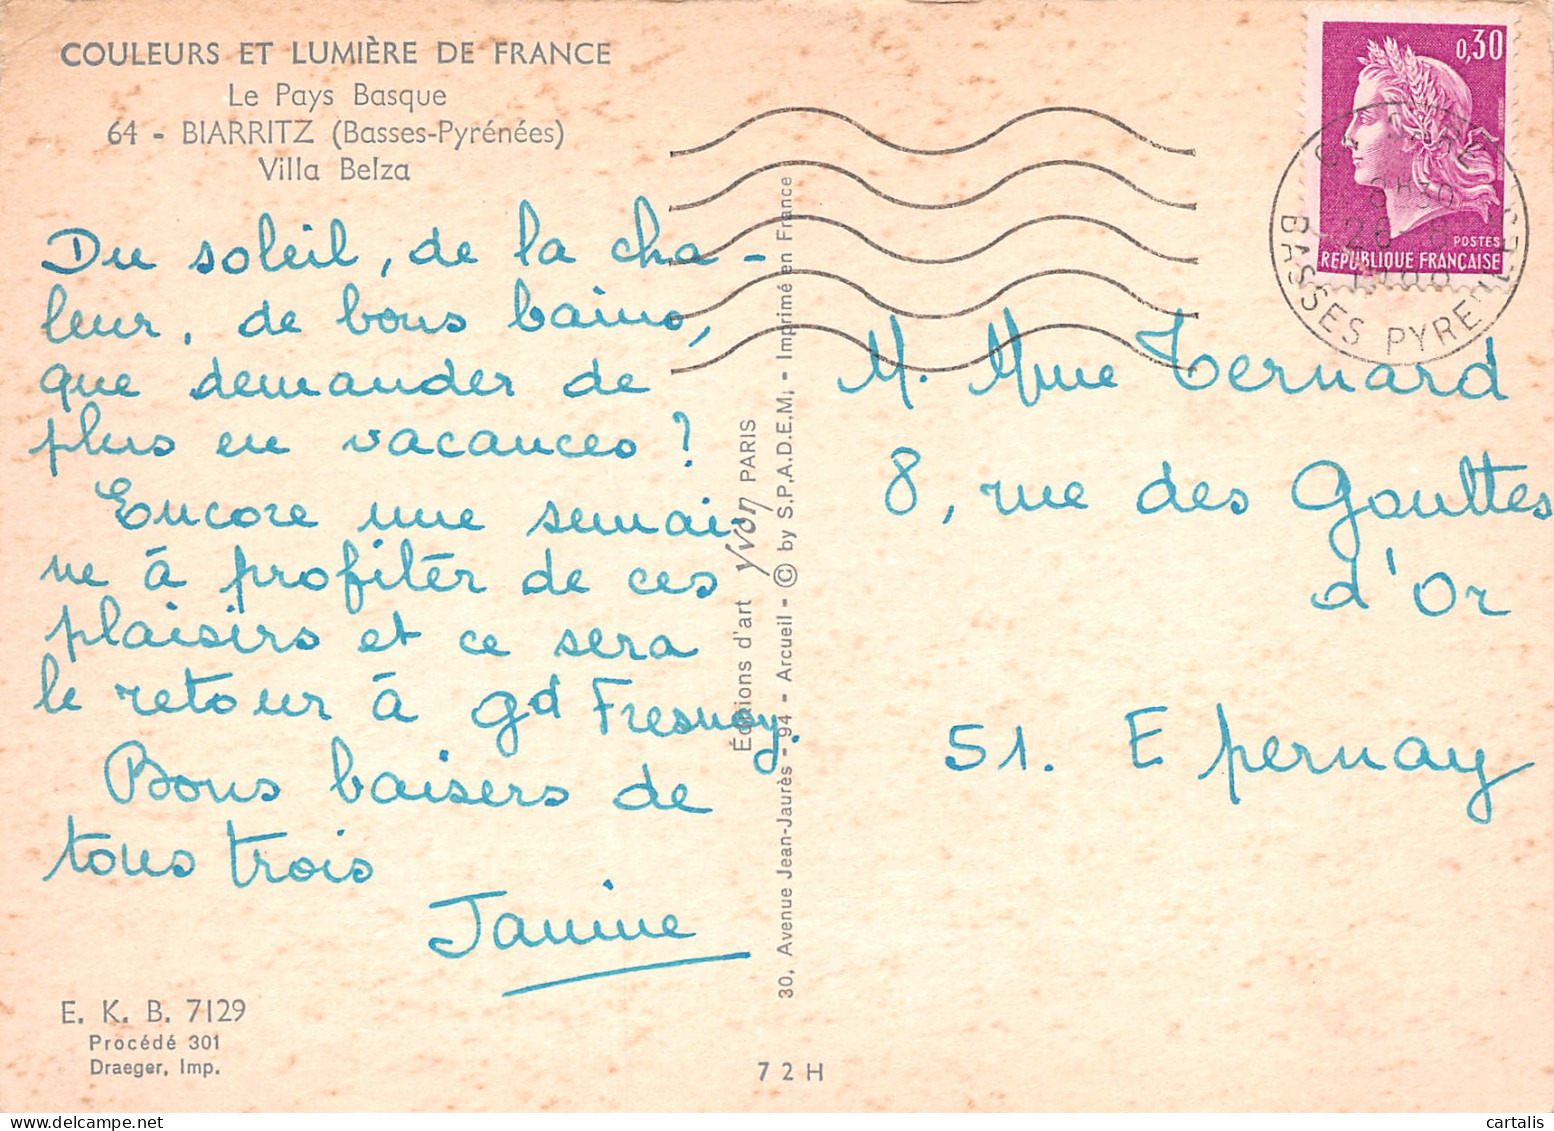 COULEURS ET LUMIÈRE DE FRANCE
Le Pays Basque
64 - BIARRITZ (Basses-Pyrénées)
Villa Belza
Du soleil, de la cha-
leur, de bons bains,
que demander de
plus en vacances ?
Encore une semai-
ne à profiter de ces
plaisirs et ce sera
le retour à gd Fresnoy.
Bons baisers de
tous trois
Janine
E. K. B. 7129
Procédé 301
Draeger, Imp.
Éditions d'art Yvon PARIS
30, Avenue Jean-Jaurès - 94 - Arcueil - © by S.P.A.D.E.M. - Imprimé en France
72H
0,30
POSTES
REPUBLIQUE FRANÇAISE
64
8H30
BASSES PYRENEES
M. Mme Ternard
8, rue des Gouttes
d'Or
51. Epernay
cartalis